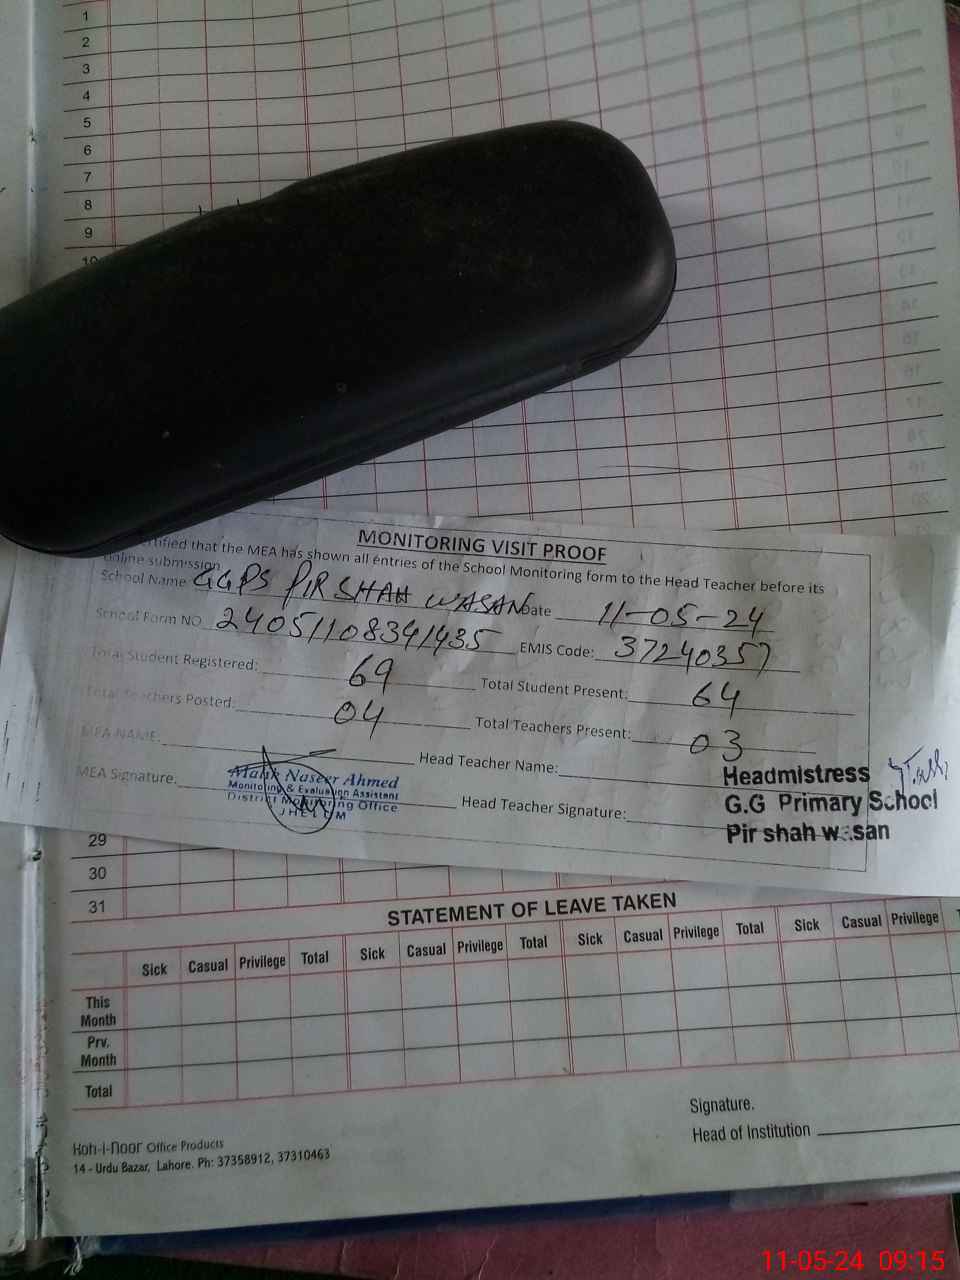 1
2
3
4
5
6
7
8
9
10
MONITORING VISIT PROOF
that the MEA has shown all entries of the School Monitoring form to the Head Teacher before its
online submission
School Name GGPS PIR SHAH WASAN Date 11-05-24
School Form NO 24051108341435 EMIS Code: 37240357
Total Student Registered: 69 Total Student Present: 64
Total Teachers Posted: 04 Total Teachers Present: 03
MEA NAME: Head Teacher Name:
MEA Signature: Head Teacher Signature:
Malik Naseer Ahmed
Monitoring & Evaluation Assistant
District Monitoring Office
JHELUM
Headmistress
G.G Primary School
Pir shah wasan
29
30
31
STATEMENT OF LEAVE TAKEN
Sick Casual Privilege Total Sick Casual Privilege Total Sick Casual Privilege Total Sick Casual Privilege
This Month
Prv. Month
Total
Signature.
Head of Institution
Koh-i-noor Office Products
14 - Urdu Bazar, Lahore. Ph: 37358912, 37310463
11-05-24 09:15